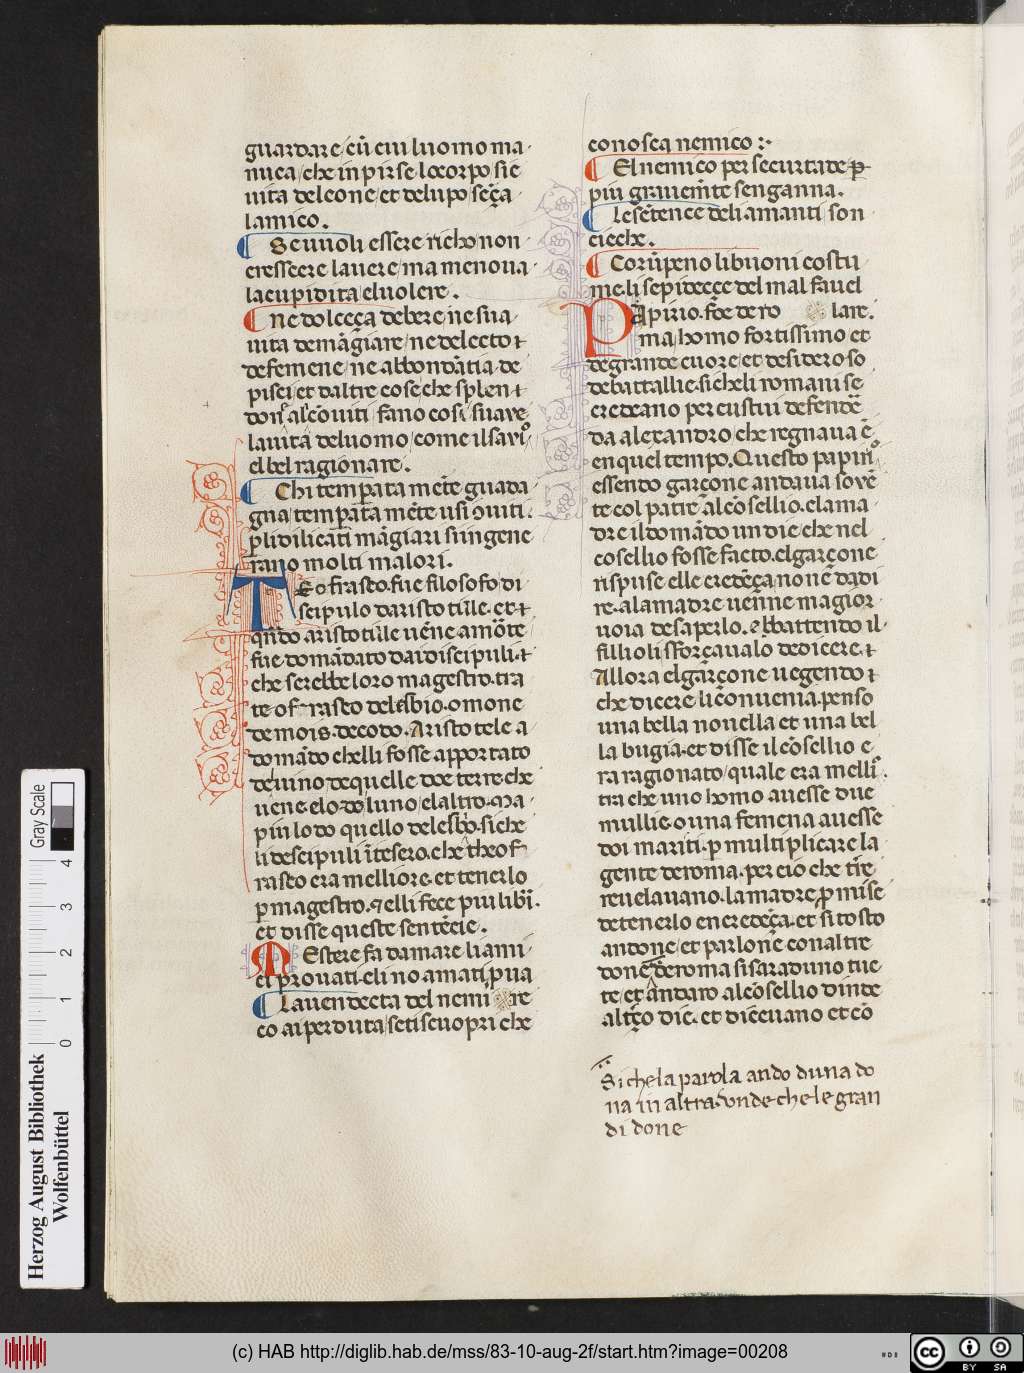 guardare cũ cui luomo ma·
nuca che inpirse lo corpo sie
uita de leone et de lupo sẽça
lamico.
Se uuoli essere richo non
cressere lauere ma menoua
la cupidita el uolere.
ne dolceça de bere ne sua
uita de mãgiare ne de lecto ⁊
de femene ne abbondãtia de
pisci et daltre cose che splen⁊
don al conuiti fano cosi suaue
la uita de luomo come il sauio
el bel ragionare.
Chi temperata mẽte guada
gna temperata mẽte usi ouiti.
p̲ li dilicati mãgiari si ingene
rano molti malori.
Teofrasto. fue filosofo di
scipulo daristotille. et ⁊
qñdo aristotille uẽne a mõte
fue domãdato dai discipuli ⁊
che serebbe loro magestro. tra
te ofrasto de lesbio. o mone
de mois. de codo. Aristotele a
domãdo chelli fosse apportato
de uino de quelle doe terre che
uene elo do luno el altro. Ma
piu lodo quello de lesbo. siche
li descipuli ĩtesero. che theof
rasto era melliore. et tenerlo
p̲ magestro. ⁊ elli fece piu libri.
et disse queste sentẽcie.
Mestere fa damare li ami
ci prouati. eli no amati p̲ua
La uendecta del nemi re
co ai perduta se ti scuopri che
conosca nemico :·
El nemico per securtade p̲
piu grauemẽte senganna.
Le sẽtence deli amanti son
cieche.
Corũpeno li buoni costu
me. li sepidecce del mal fauel
lare.
Papirio. foe de ro
ma homo fortissimo et
de grande cuore et desideroso
de battallie. siche li romani se
credeano per custui defende
da alexandro che regnaua ẽ
en quel tempo. Questo papirio
essendo garcone andaua souẽ
te col patre al cõsellio. e la ma
dre il domãdo un die che nel
cosellio fosse facto. el garcone
rispuse elle credẽça non ẽ da di
re. a la madre uẽnne magior
uoia de saperlo. e bbattendo il
fillio li sforçaualo de dicere. ⁊
Allora el garcone uegendo ⁊
che dicere li conuenia. penso
una bella nouella et una bel
la bugia. et disse il cõsellio e
ra ragionato quale era mellio.
tra che uno homo auesse due
mullie. o una femena auesse
doi mariti. p̲ multiplicare la
gente de roma. per cio che tẽre
reuelauano. la madre p̲mise
de tenerlo en credeça. et si tosto
andone et parlone con altre
done de roma si saraduno tue
te et andaro al cõsellio dinde
altrço die. et diceuano et cõ
Siche la parola ando duna do
na in altra. onde che le gran
di done
Herzog August Bibliothek
Wolfenbüttel
Gray Scale
0 1 2 3 4
(c) HAB http://diglib.hab.de/mss/83-10-aug-2f/start.htm?image=00208
cc BY SA